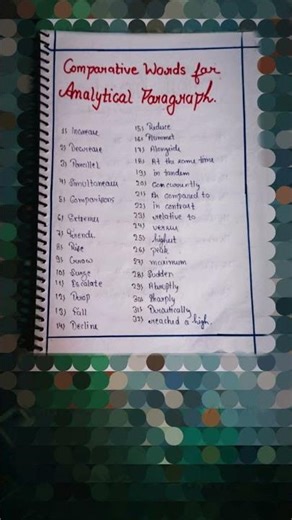 Comparative Words for
Analytical Paragraph.
1) Increase
2) Decrease
3) Parallel
4) Simultaneous
5) Comparisons
6) Extremes
7) Trends
8) Rise
9) Grow
10) Surge
11) Escalate
12) Drop
13) Fall
14) Decline
15) Reduce
16) Plummet
17) Alongside
18) At the same time
19) in tandem
20) concurrently
21) As compared to
22) in contrast
23) relative to
24) versus
25) highest
26) Peak
27) maximum
28) Sudden
29) Abruptly
30) Sharply
31) Drastically
32) reached a high.